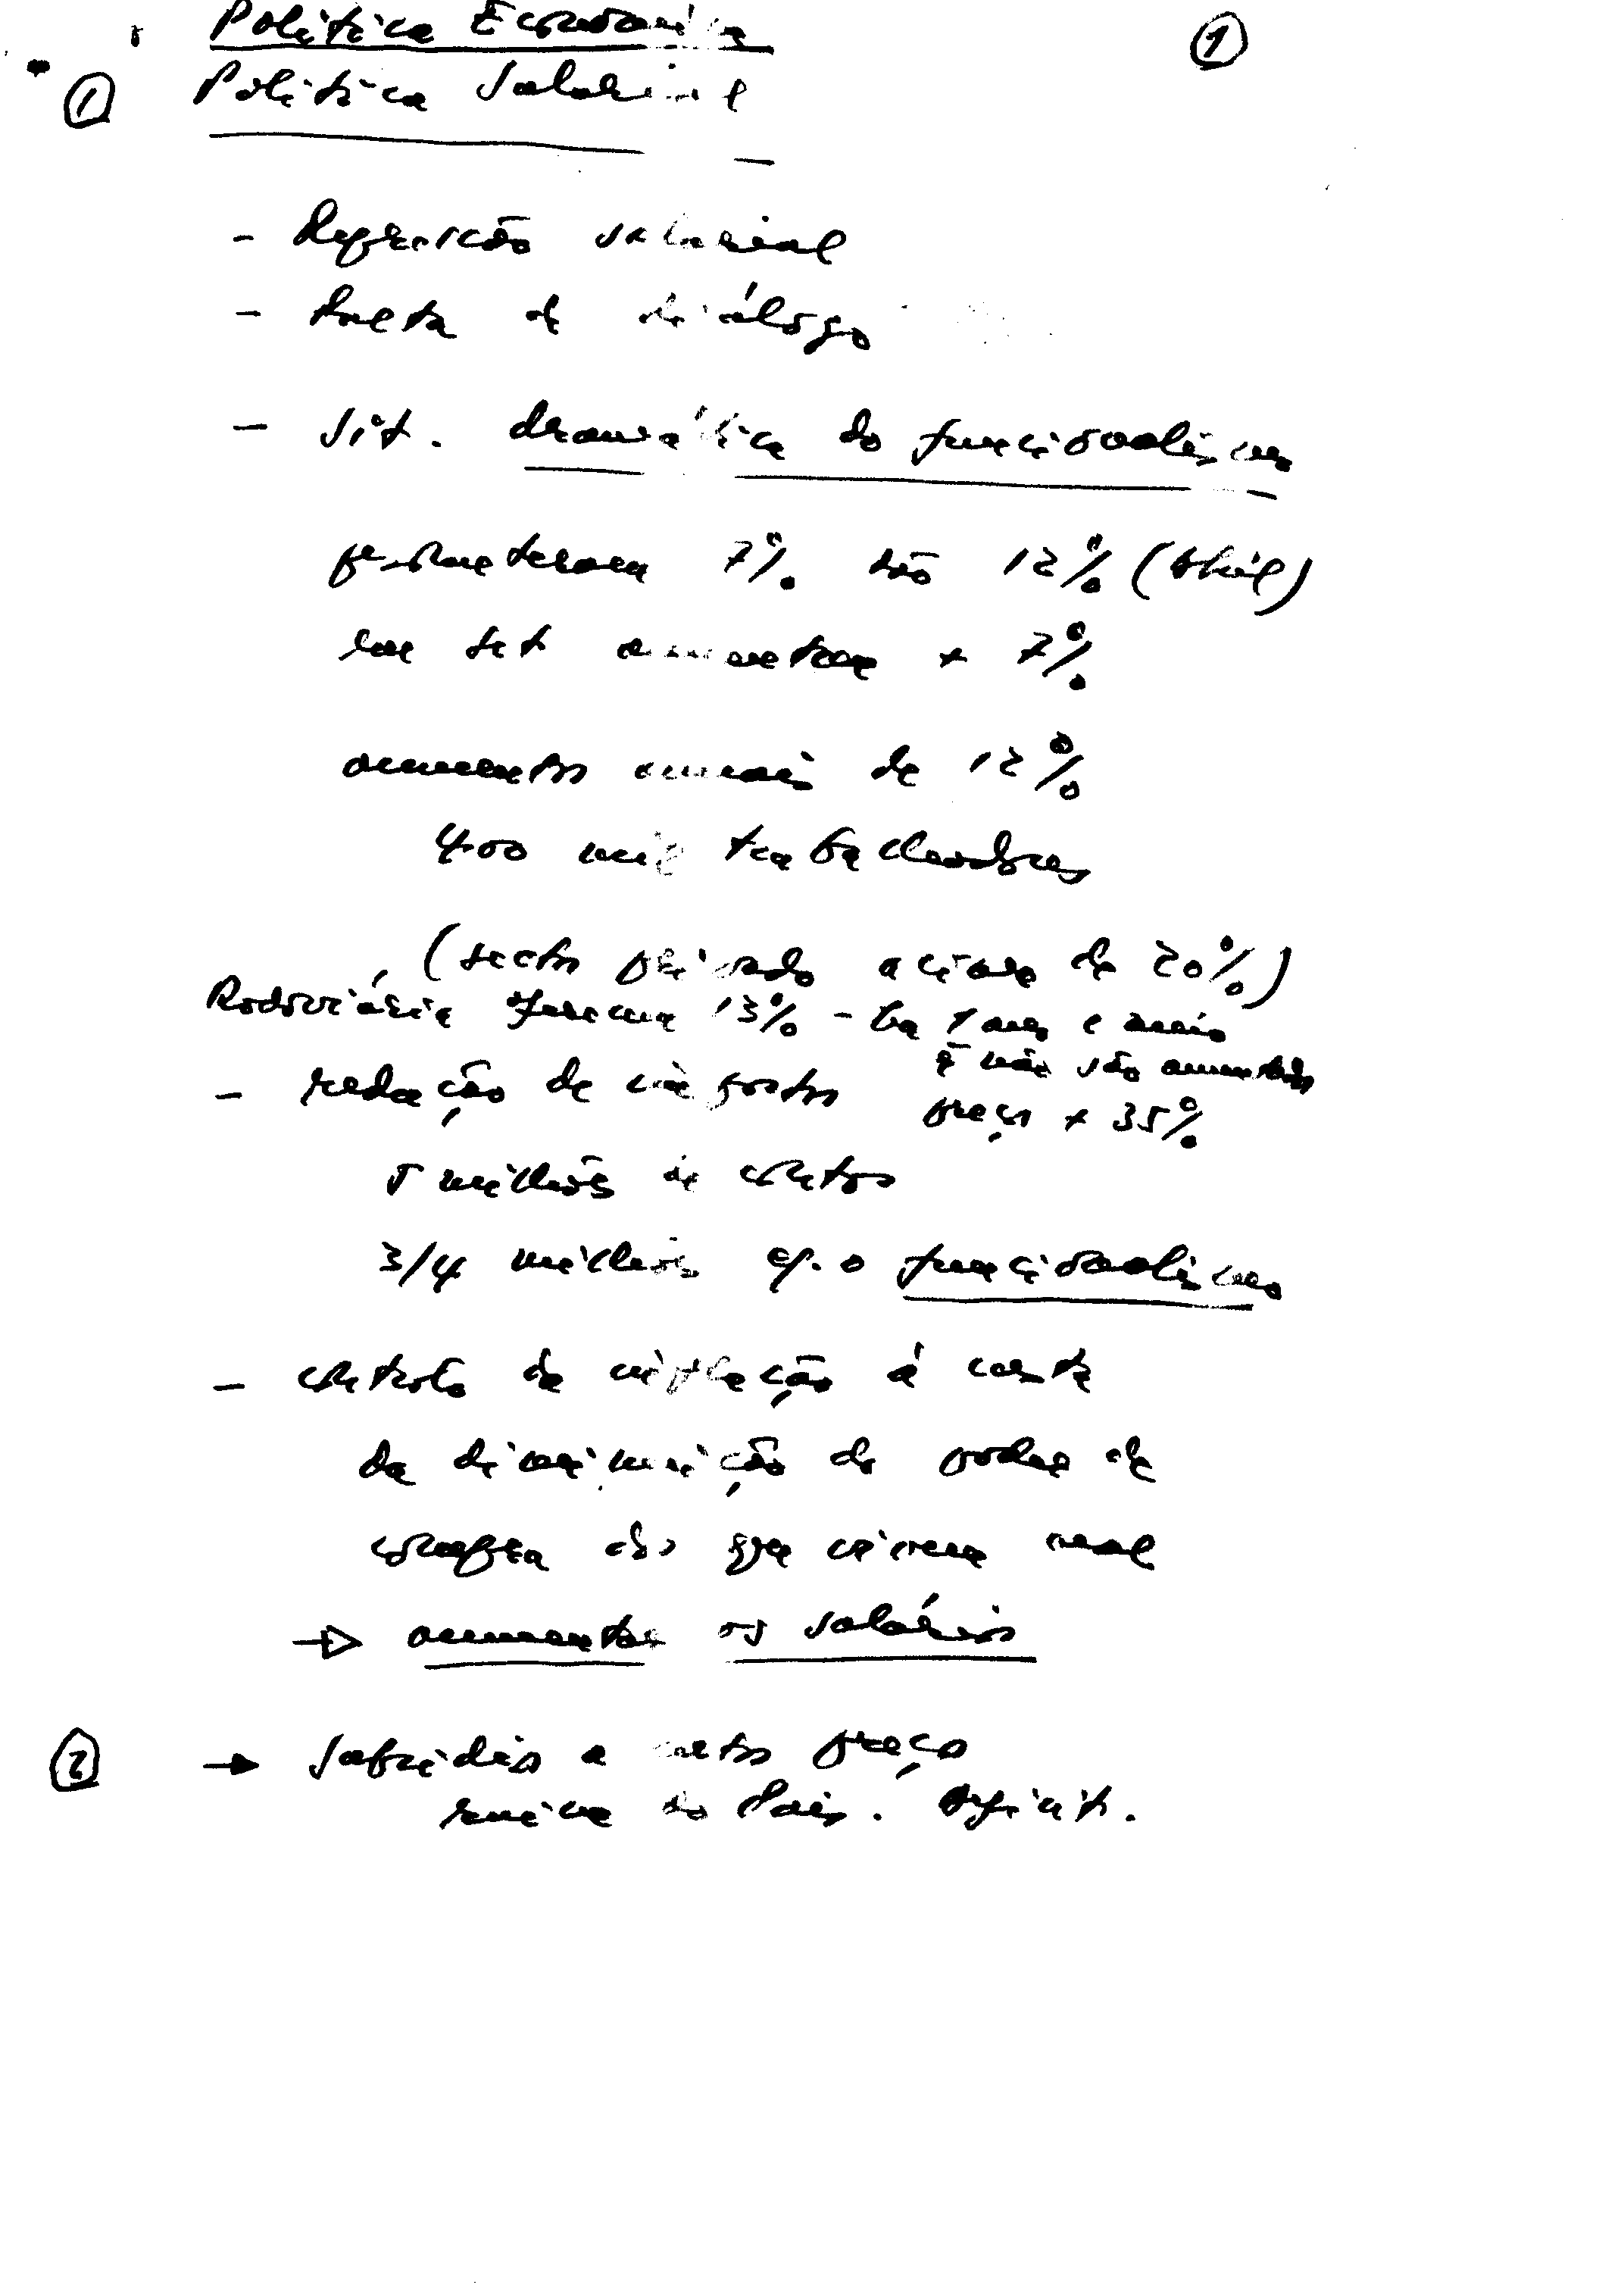 Política Económica
①
① Política Salarial
- Repressão salarial
- Falta de diálogo
- Sit. dramática do funcionalismo
prometeram 7% são 12% (Abril)
em set aumentam + 7%
aumentos anuais de 12%
400 mil trabalhadores
(sector privado acima de 20%)
Rodoviária 13% - há 1 ano e mais
q não são aumentados
- redução de impostos
preços + 35%
5 milhões de contos
3/4 milhões p. o funcionalismo
- controlo da inflação à custa
da diminuição do poder de
compra dos que vivem mal
→ aumentar os salários
② → Subsídios a certos preços
ruína do País. Deficit.